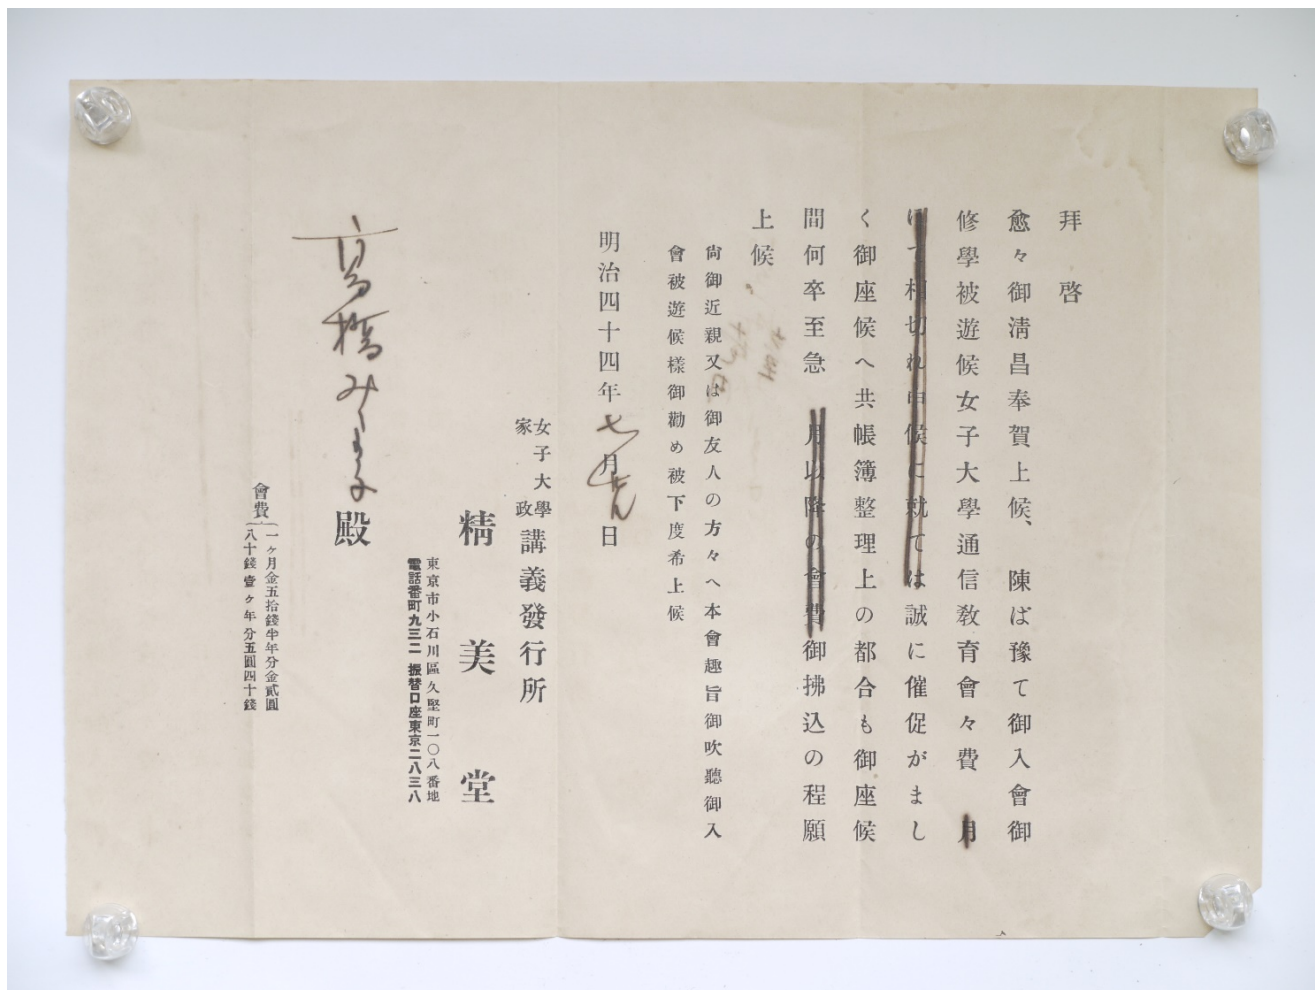 拜啓
愈々御淸昌奉賀上候、陳ば豫て御入會御
修學被遊候女子大學通信敎育會々費　月
けて相切れ申候に就ては誠に催促がまし
く御座候へ共帳簿整理上の都合も御座候
間何卒至急　月以降の會費御拂込の程願
上候
尙御近親又は御友人の方々へ本會趣旨御吹聽御入
會被遊候樣御勸め被下度希上候
明治四十四年七月　日
女子大學
家政
講義發行所
精美堂
東京市小石川區久堅町一〇八番地
電話番町九三二　振替口座東京二八三八
高橋み　子殿
會費
一ヶ月金五拾錢半年分金貳圓
八十錢壹ヶ年分五圓四十錢